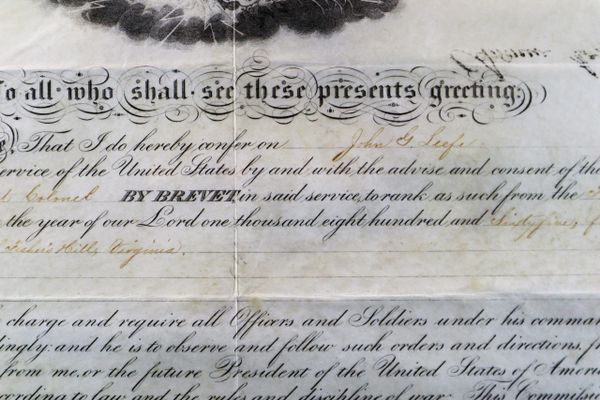 o all who shall see these presents greeting:
That I do hereby confer on John G Leefe
ervice of the United States by and with the advise and consent of the
t Colonel BY BREVET in said service, to rank as such from the
the year of our Lord one thousand eight hundred and Sixty five, f
Fishers Hill, Virginia.
charge and require all Officers and Soldiers under his comman
ingly: and he is to observe and follow such orders and directions, fr
from me, or the future President of the United States of Ameri
cording to law and the rules and discipline of war. This Commissi